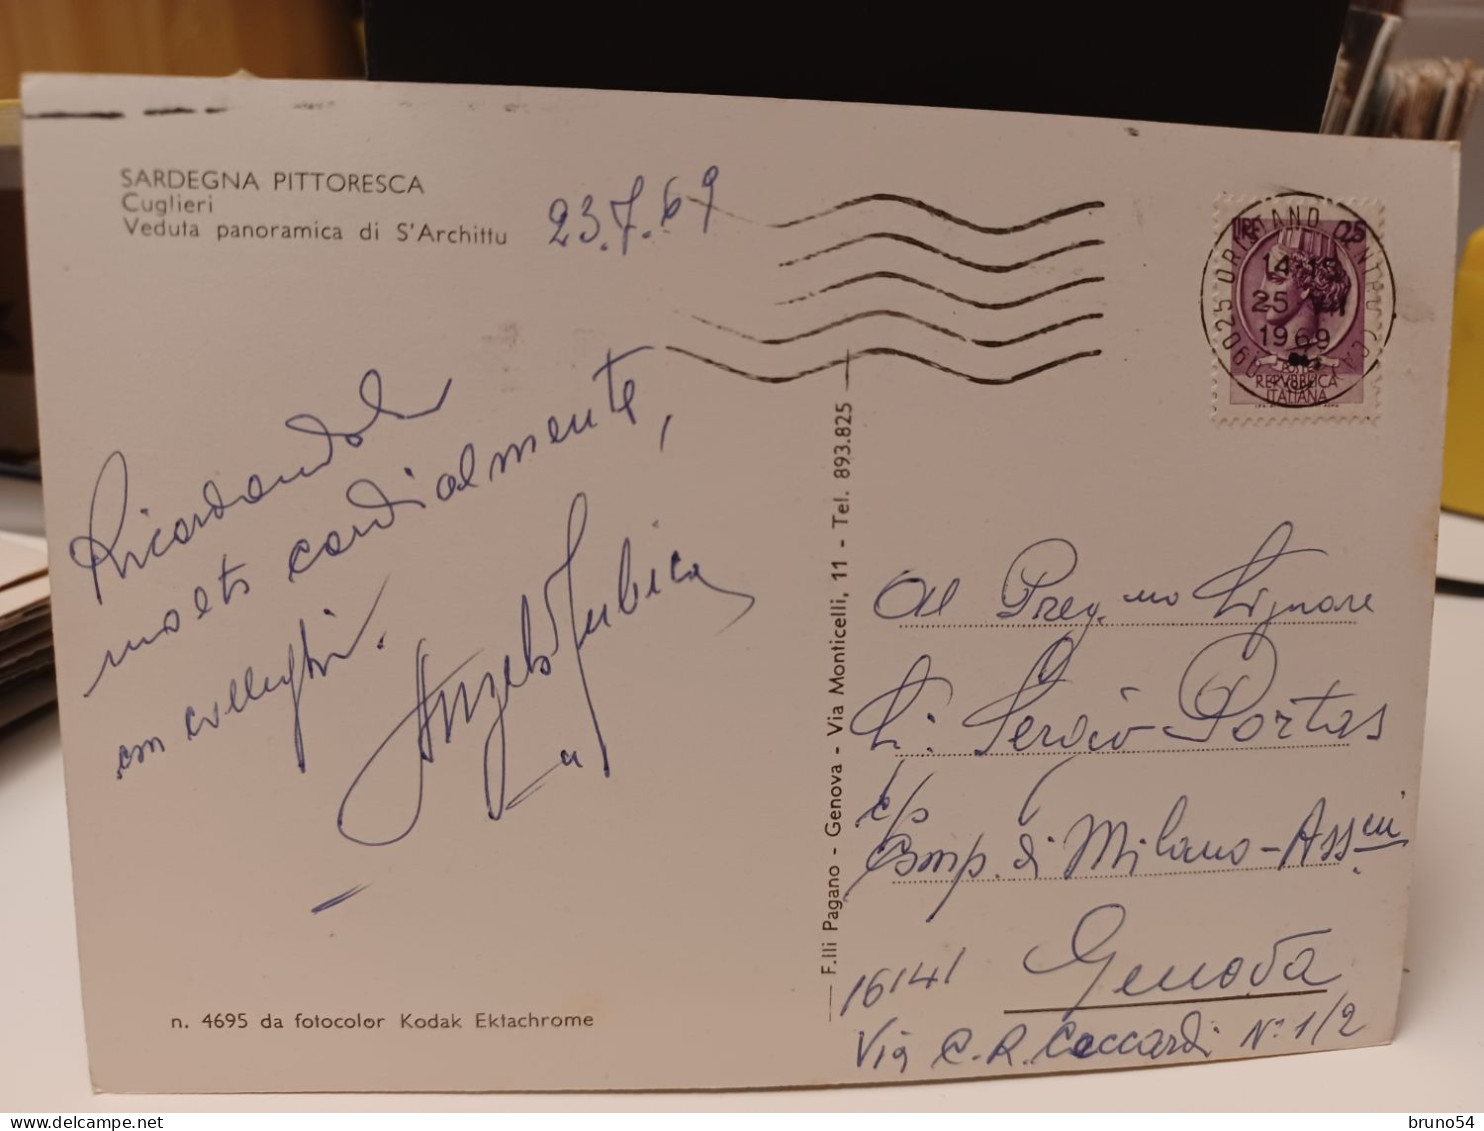 SARDEGNA PITTORESCA
Cuglieri
Veduta panoramica di S'Archittu
23.7.69
Ricordandola
molto cordialmente,
con colleghi.
Angelo
n. 4695 da fotocolor Kodak Ektachrome
F.lli Pagano - Genova - Via Monticelli, 11 - Tel. 893.825
LIRE 25
POSTE
REPVBBLICA
ITALIANA
09025 ORISTANO CENTRO
14-15
25 VII
1969
Al Preg.mo Signore
Sergio Portas
c/o
Comp. di Milano - Ass.ni
Genova
16141
Via C.R. Ceccardi N° 1/2
bruno54